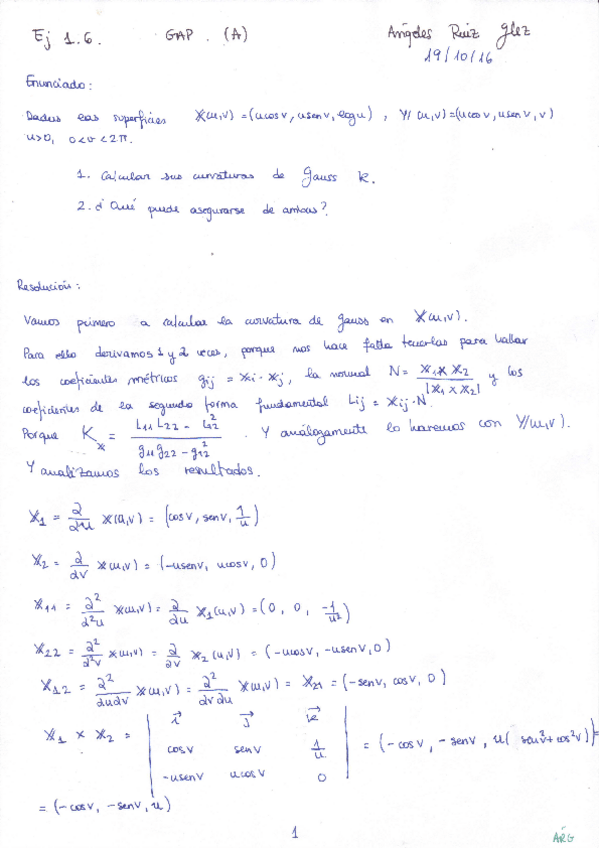 Ej 1.6. GAP. (A) Angeles Ruiz Glez
19/10/16
Enunciado:
Dadas las superficies X(u,v)=(ucosv, usenv, logu), Y(u,v)=(ucosv, usenv, v)
u>0, 0<v<2π.
1. Calcular sus curvaturas de Gauss K.
2. ¿Qué puede asegurarse de ambas?
Resolución:
Vamos primero a calcular la curvatura de gauss en X(u,v).
Para ello derivamos 1 y 2 veces, porque nos hace falta tenerlas para hallar
los coeficientes métricos gij = Xi · Xj, la normal N = X1 x X2 / |X1 x X2| y los
coeficientes de la segunda forma fundamental Lij = Xij · N.
Porque K_X = (L11 L22 - L12²) / (g11 g22 - g12²). Y análogamente lo haremos con Y(u,v).
Y analizamos los resultados.
X1 = ∂/∂u X(u,v) = (cosv, senv, 1/u)
X2 = ∂/∂v X(u,v) = (-usenv, ucosv, 0)
X11 = ∂²/∂²u X(u,v) = ∂/∂u X1(u,v) = (0, 0, -1/u²)
X22 = ∂²/∂²v X(u,v) = ∂/∂v X2(u,v) = (-ucosv, -usenv, 0)
X12 = ∂²/∂u∂v X(u,v) = ∂²/∂v∂u X(u,v) = X21 = (-senv, cosv, 0)
X1 x X2 = | i j k | cosv senv 1/u | -usenv ucosv 0 | = (-cosv, -senv, u(sen²v+cos²v)) =
= (-cosv, -senv, u)
1
ARG